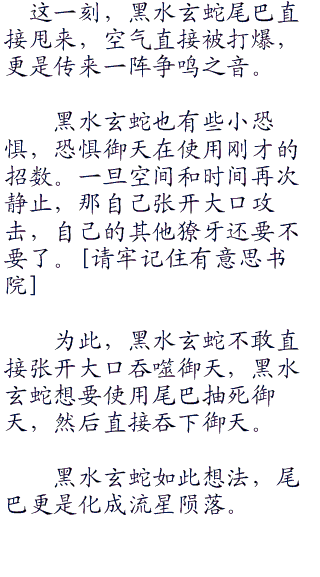 这一刻，黑水玄蛇尾巴直
接甩来，空气直接被打爆，
更是传来一阵争鸣之音。
黑水玄蛇也有些小恐
惧，恐惧御天在使用刚才的
招数。一旦空间和时间再次
静止，那自己张开大口攻
击，自己的其他獠牙还要不
要了。[请牢记住有意思书
院]
为此，黑水玄蛇不敢直
接张开大口吞噬御天，黑水
玄蛇想要使用尾巴抽死御
天，然后直接吞下御天。
黑水玄蛇如此想法，尾
巴更是化成流星陨落。